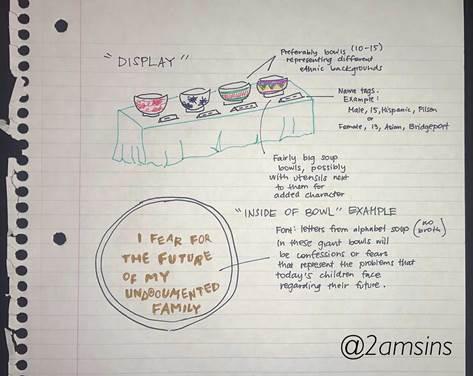 "DISPLAY"
Preferably bowls (10-15)
representing different
ethnic backgrounds
Name tags.
Example:
Male, 15, Hispanic, Pilsen
or
Female, 13, Asian, Bridgeport
Fairly big soup
bowls, possibly
with utensils next
to them for
added character
"INSIDE OF BOWL" EXAMPLE
Font: letters from alphabet soup (no broth)
In these giant bowls will
be confessions or fears
that represent the problems that
today's children face
regarding their future.
I FEAR FOR
THE FUTURE
OF MY
UNDOCUMENTED
FAMILY
@2amsins